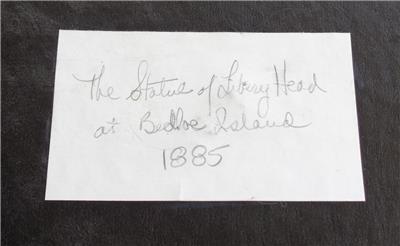 The Statue of Libery Head
at Bedloe Island
1885